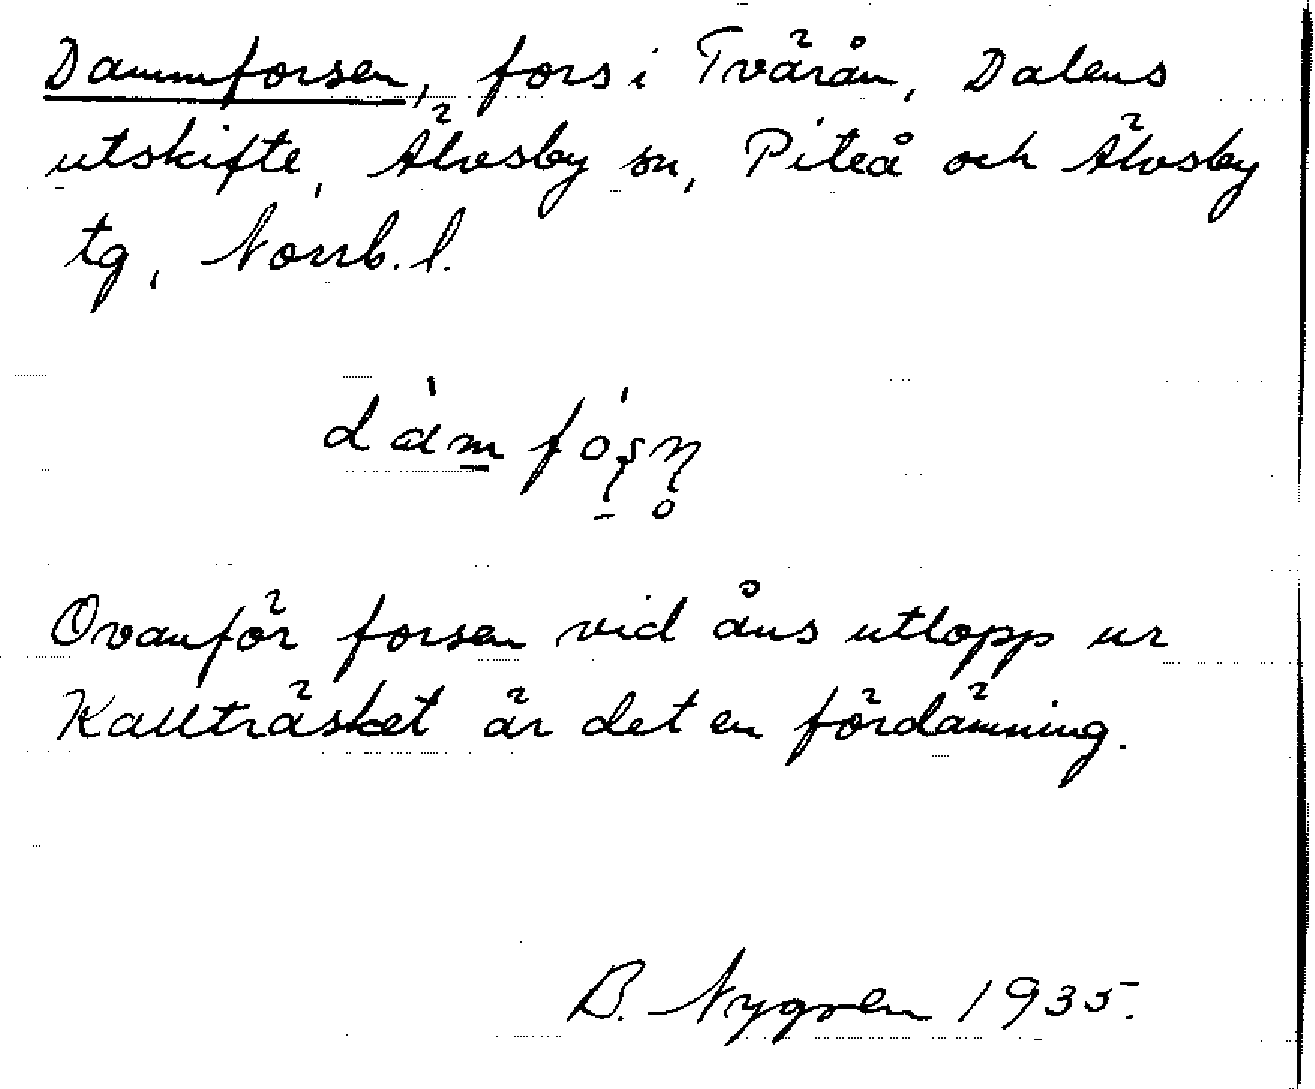 Dammforsen, fors i Tvärån, Dalens
utskifte, Älvsby sn, Piteå och Älvsby
tg, Norrb. l.
dàm̲ fó̀ʂ̲ɳ̥
Ovanför forsen vid åns utlopp ur
Kallträsket är det en fördämning.
B. Nygren 1935.